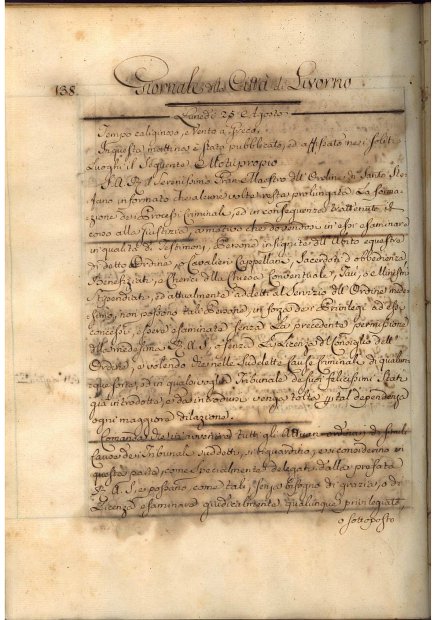 138 Giornale della Città di Livorno
Lunedì 25 Agosto
Tempo caliginoso, e Vento a
In questa mattina è stato pubblicato, ed affissato nei soliti
Luoghi il Seguente Motuproprio
S. A. R. il Serenissimo Gran Maestro dell'Ordine di Santo Ste-
fano informato che alcune volte resta prolungata la forma-
zione dei Processi Criminali, ed in conseguenza trattenuto il
corso alla Giustizia, a motivo che dovendosi in essi esaminare
in qualità di Testimoni, Persone insignite dell'Abito equestre
di detto Ordine, o Cavalieri Cappellani, Sacerdoti d'obbedienza,
Benefiziati, e Cherici della Chiesa Conventuale, ed Ministri
Stipendiati, ed attualmente addetti al Servizio dell'Ordine mede-
simo, non possono tali Persone, in forza dei Privilegi ad essi
concessi, essere esaminate senza la precedente permissione
della medesima R. A. S., o senza la Licenza del Consiglio dell'
Ordine, e volendo che nelle Suddette Cause Criminali di qualun-
que sorte, ed in qualsivoglia Tribunale dei suoi felicissimi Stati
già introdotte, e da introdursi venga tolta tal dependenza
ogni maggiore dilazione.
Comanda che in avvenire tutti gli Attuari di simili
Cause dei Tribunali suddetti, si riguardino, e si considerino in
questa parte, come Specialmente delegati dalla prefata
R. A. S., e possano, come tali, senza bisogno di grazia, o di
Licenza esaminare giudicialmente qualunque privilegiato,
o sottoposto